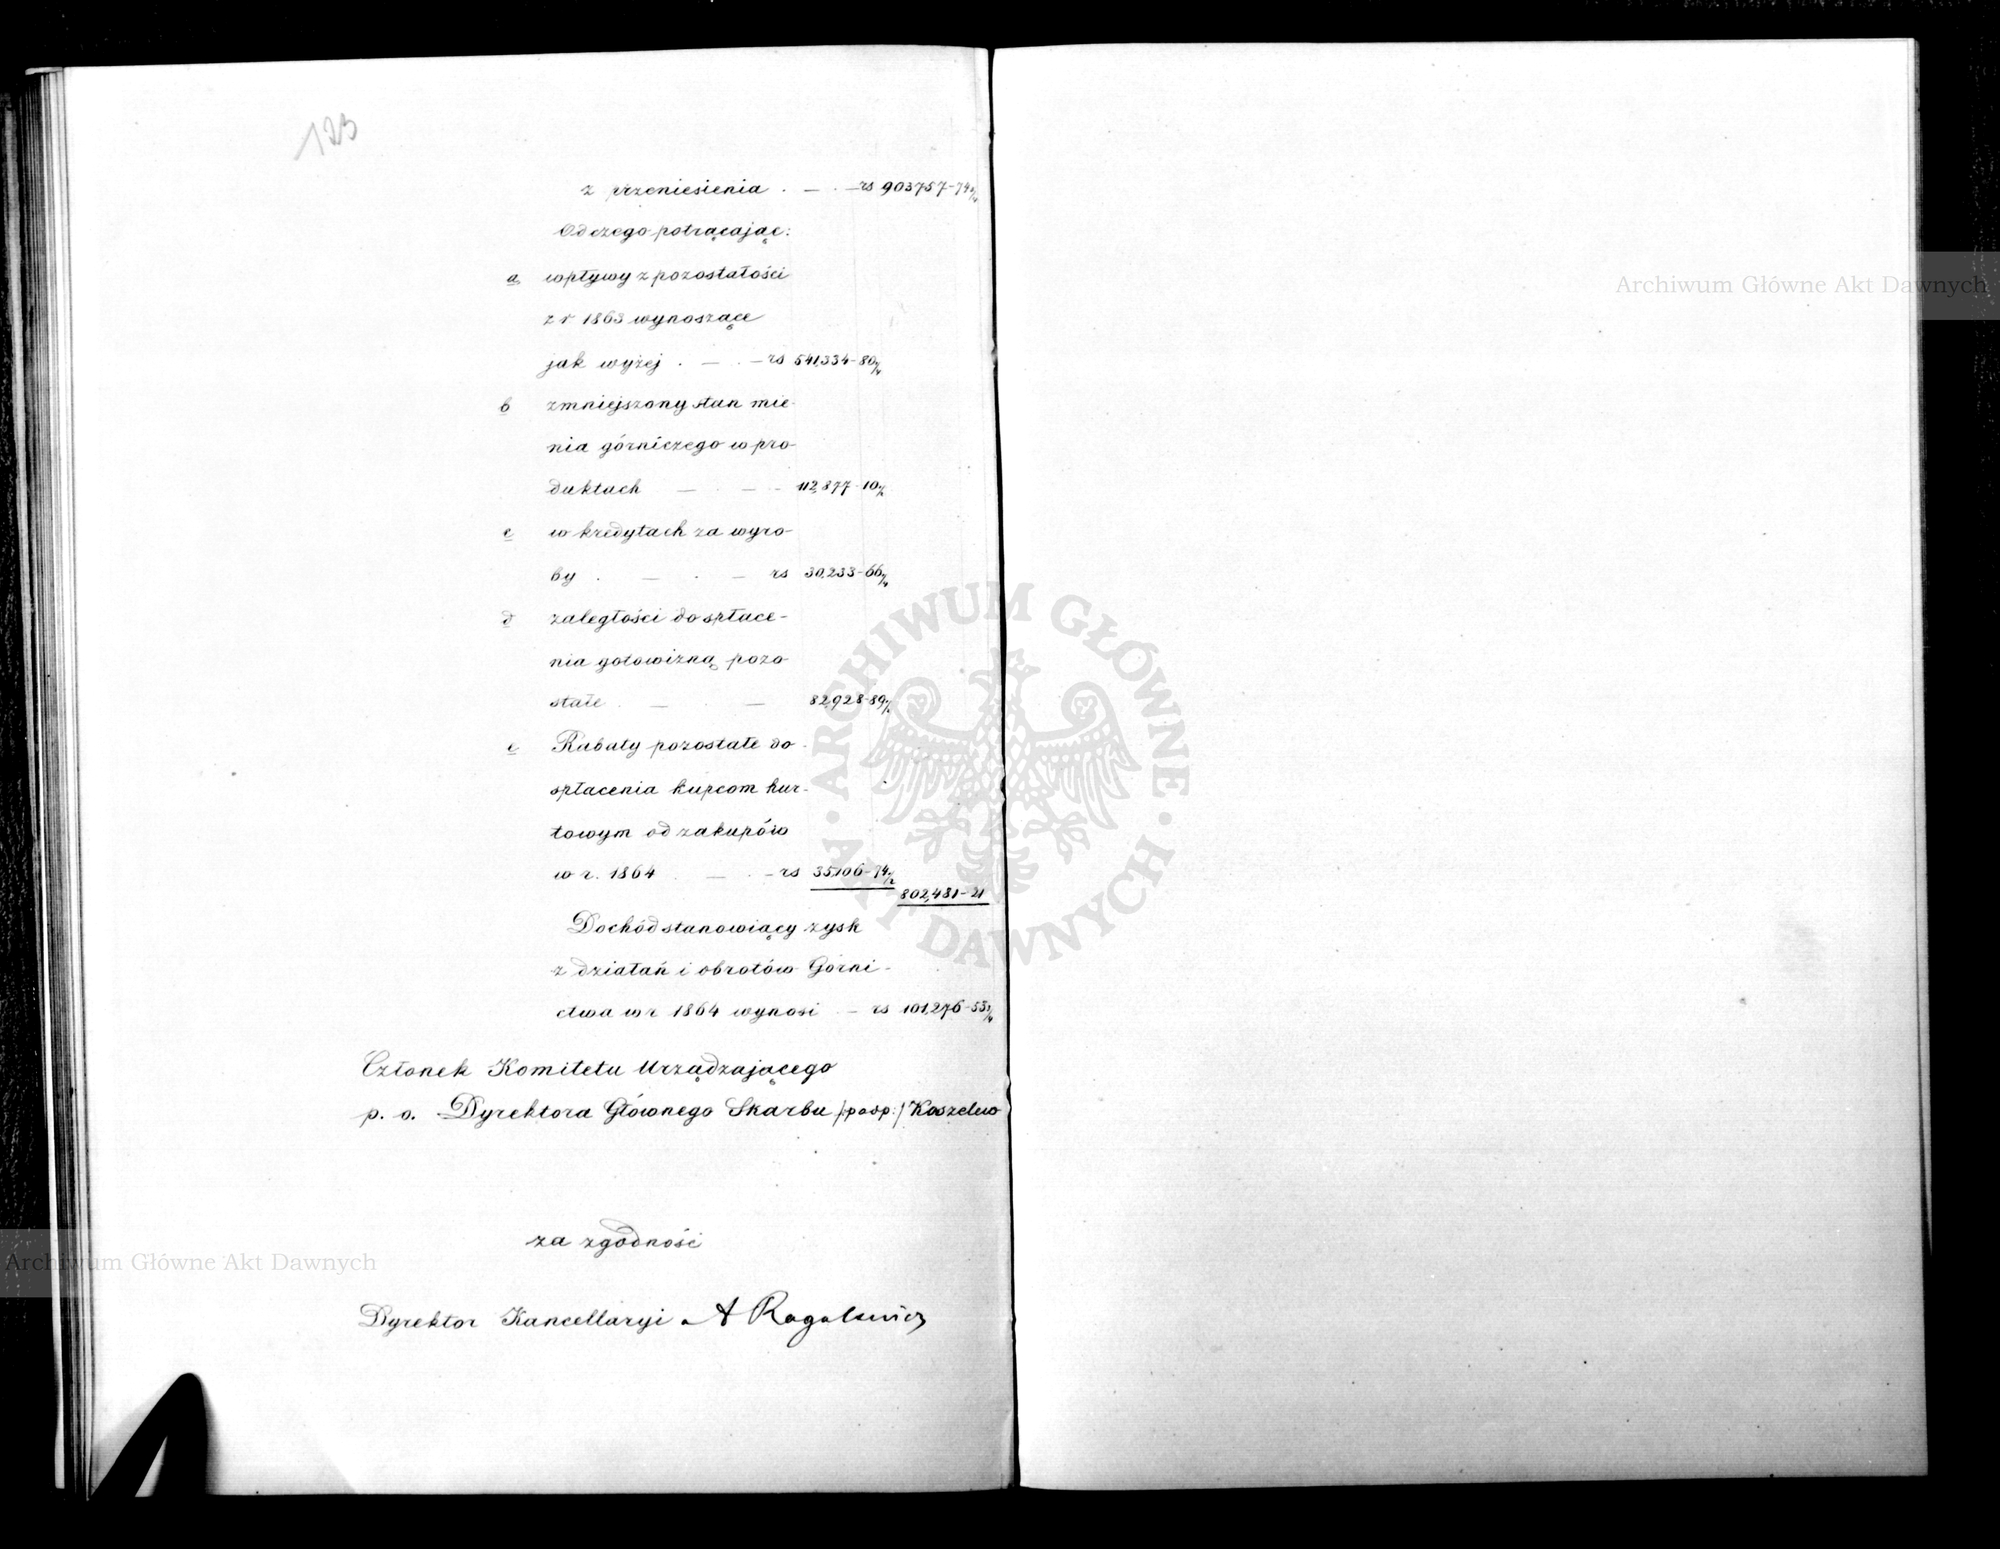 123
z przeniesienia . — . — rs 903757-74 3/4
Od czego potrącając:
a wpływy z pozostałości
z r 1863 wynoszące
jak wyżej . — . — rs 541,334-80 1/4
b zmniejszony stan mie-
nia górniczego w pro-
duktach — — - 112,877-10 1/2
c w kredytach za wyro-
by . — . — rs 30,233-66 1/4
d zaległości do spłace-
nia gotowizną pozo-
stałe . — . — 82,928-89 1/2
e Rabaty pozostałe do
spłacenia kupcom hur-
towym od zakupów
w r. 1864 . — . - rs 35,106-74 1/2
802,481-21
Dochód stanowiący zysk
z działań i obrotów Górni-
ctwa w r 1864 wynosi - rs 101,276-53 3/4
Członek Komitetu Urządzającego
p. o. Dyrektora Głównego Skarbu /:podp:/ Koszelew
za zgodność
Dyrektor Kancellaryi A Rogalewicz
Archiwum Główne Akt Dawnych
ARCHIWUM GŁÓWNE · AKT DAWNYCH ·
Archiwum Główne Akt Dawnych